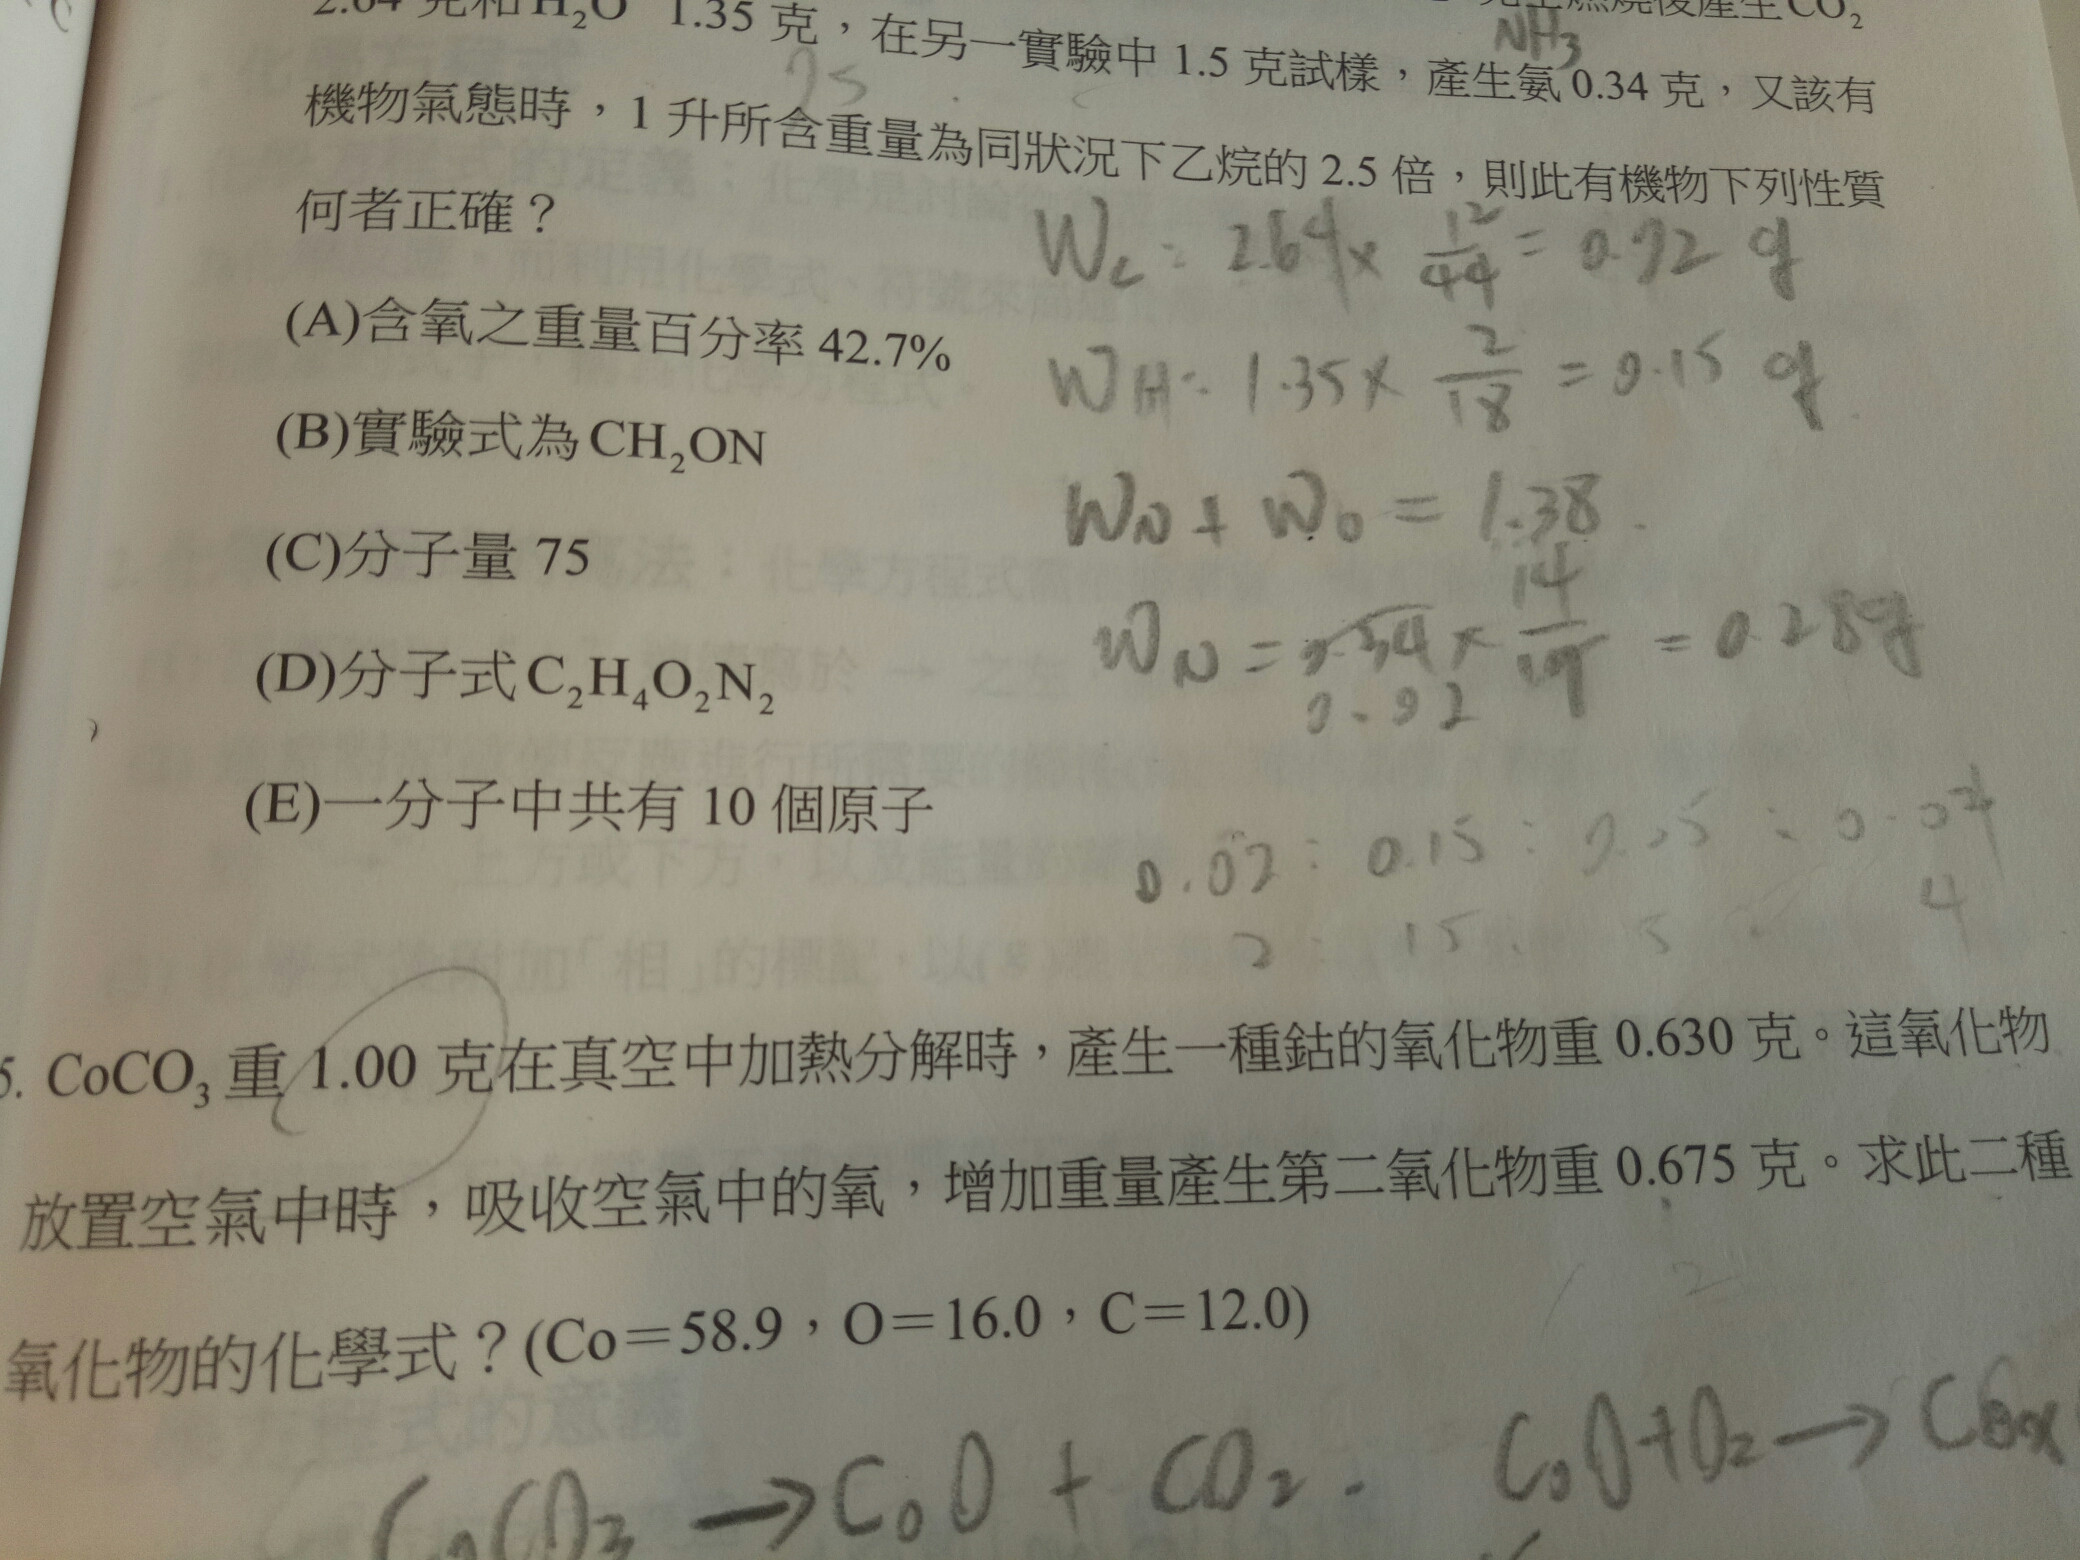 2.64 克和 H₂O 1.35 克，在另一實驗中 1.5 克試樣，產生氨 0.34 克，又該有
燃燒後產生CO₂
NH₃
75
機物氣態時，1 升所含重量為同狀況下乙烷的 2.5 倍，則此有機物下列性質
何者正確？
W_C = 2.64 × 12/44 = 0.72 g
(A)含氧之重量百分率 42.7%
W_H = 1.35 × 2/18 = 0.15 g
(B)實驗式為CH₂ON
W_N + W_O = 1.38
(C)分子量 75
W_N = 0.34 × 14/17 = 0.28g
0.02
(D)分子式C₂H₄O₂N₂
(E)一分子中共有 10 個原子
0.02 : 0.15 :
2 : 15 5 4
5. CoCO₃重 1.00 克在真空中加熱分解時，產生一種鈷的氧化物重 0.630 克。這氧化物
放置空氣中時，吸收空氣中的氧，增加重量產生第二氧化物重 0.675 克。求此二種
氧化物的化學式？(Co＝58.9，O＝16.0，C＝12.0)
CoCO₃ → CoO + CO₂. CoO+O₂→